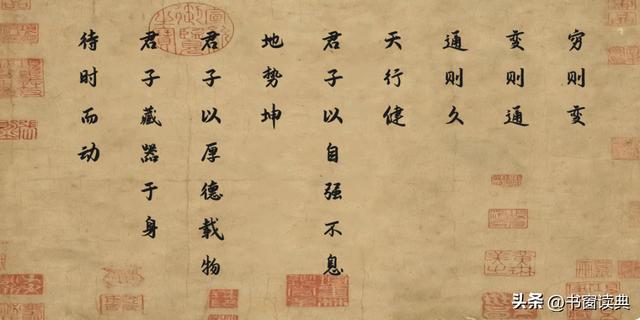 穷则变
变则通
通则久
天行健
君子以自强不息
地势坤
君子以厚德载物
君子藏器于身
待时而动
头条@书窗读典